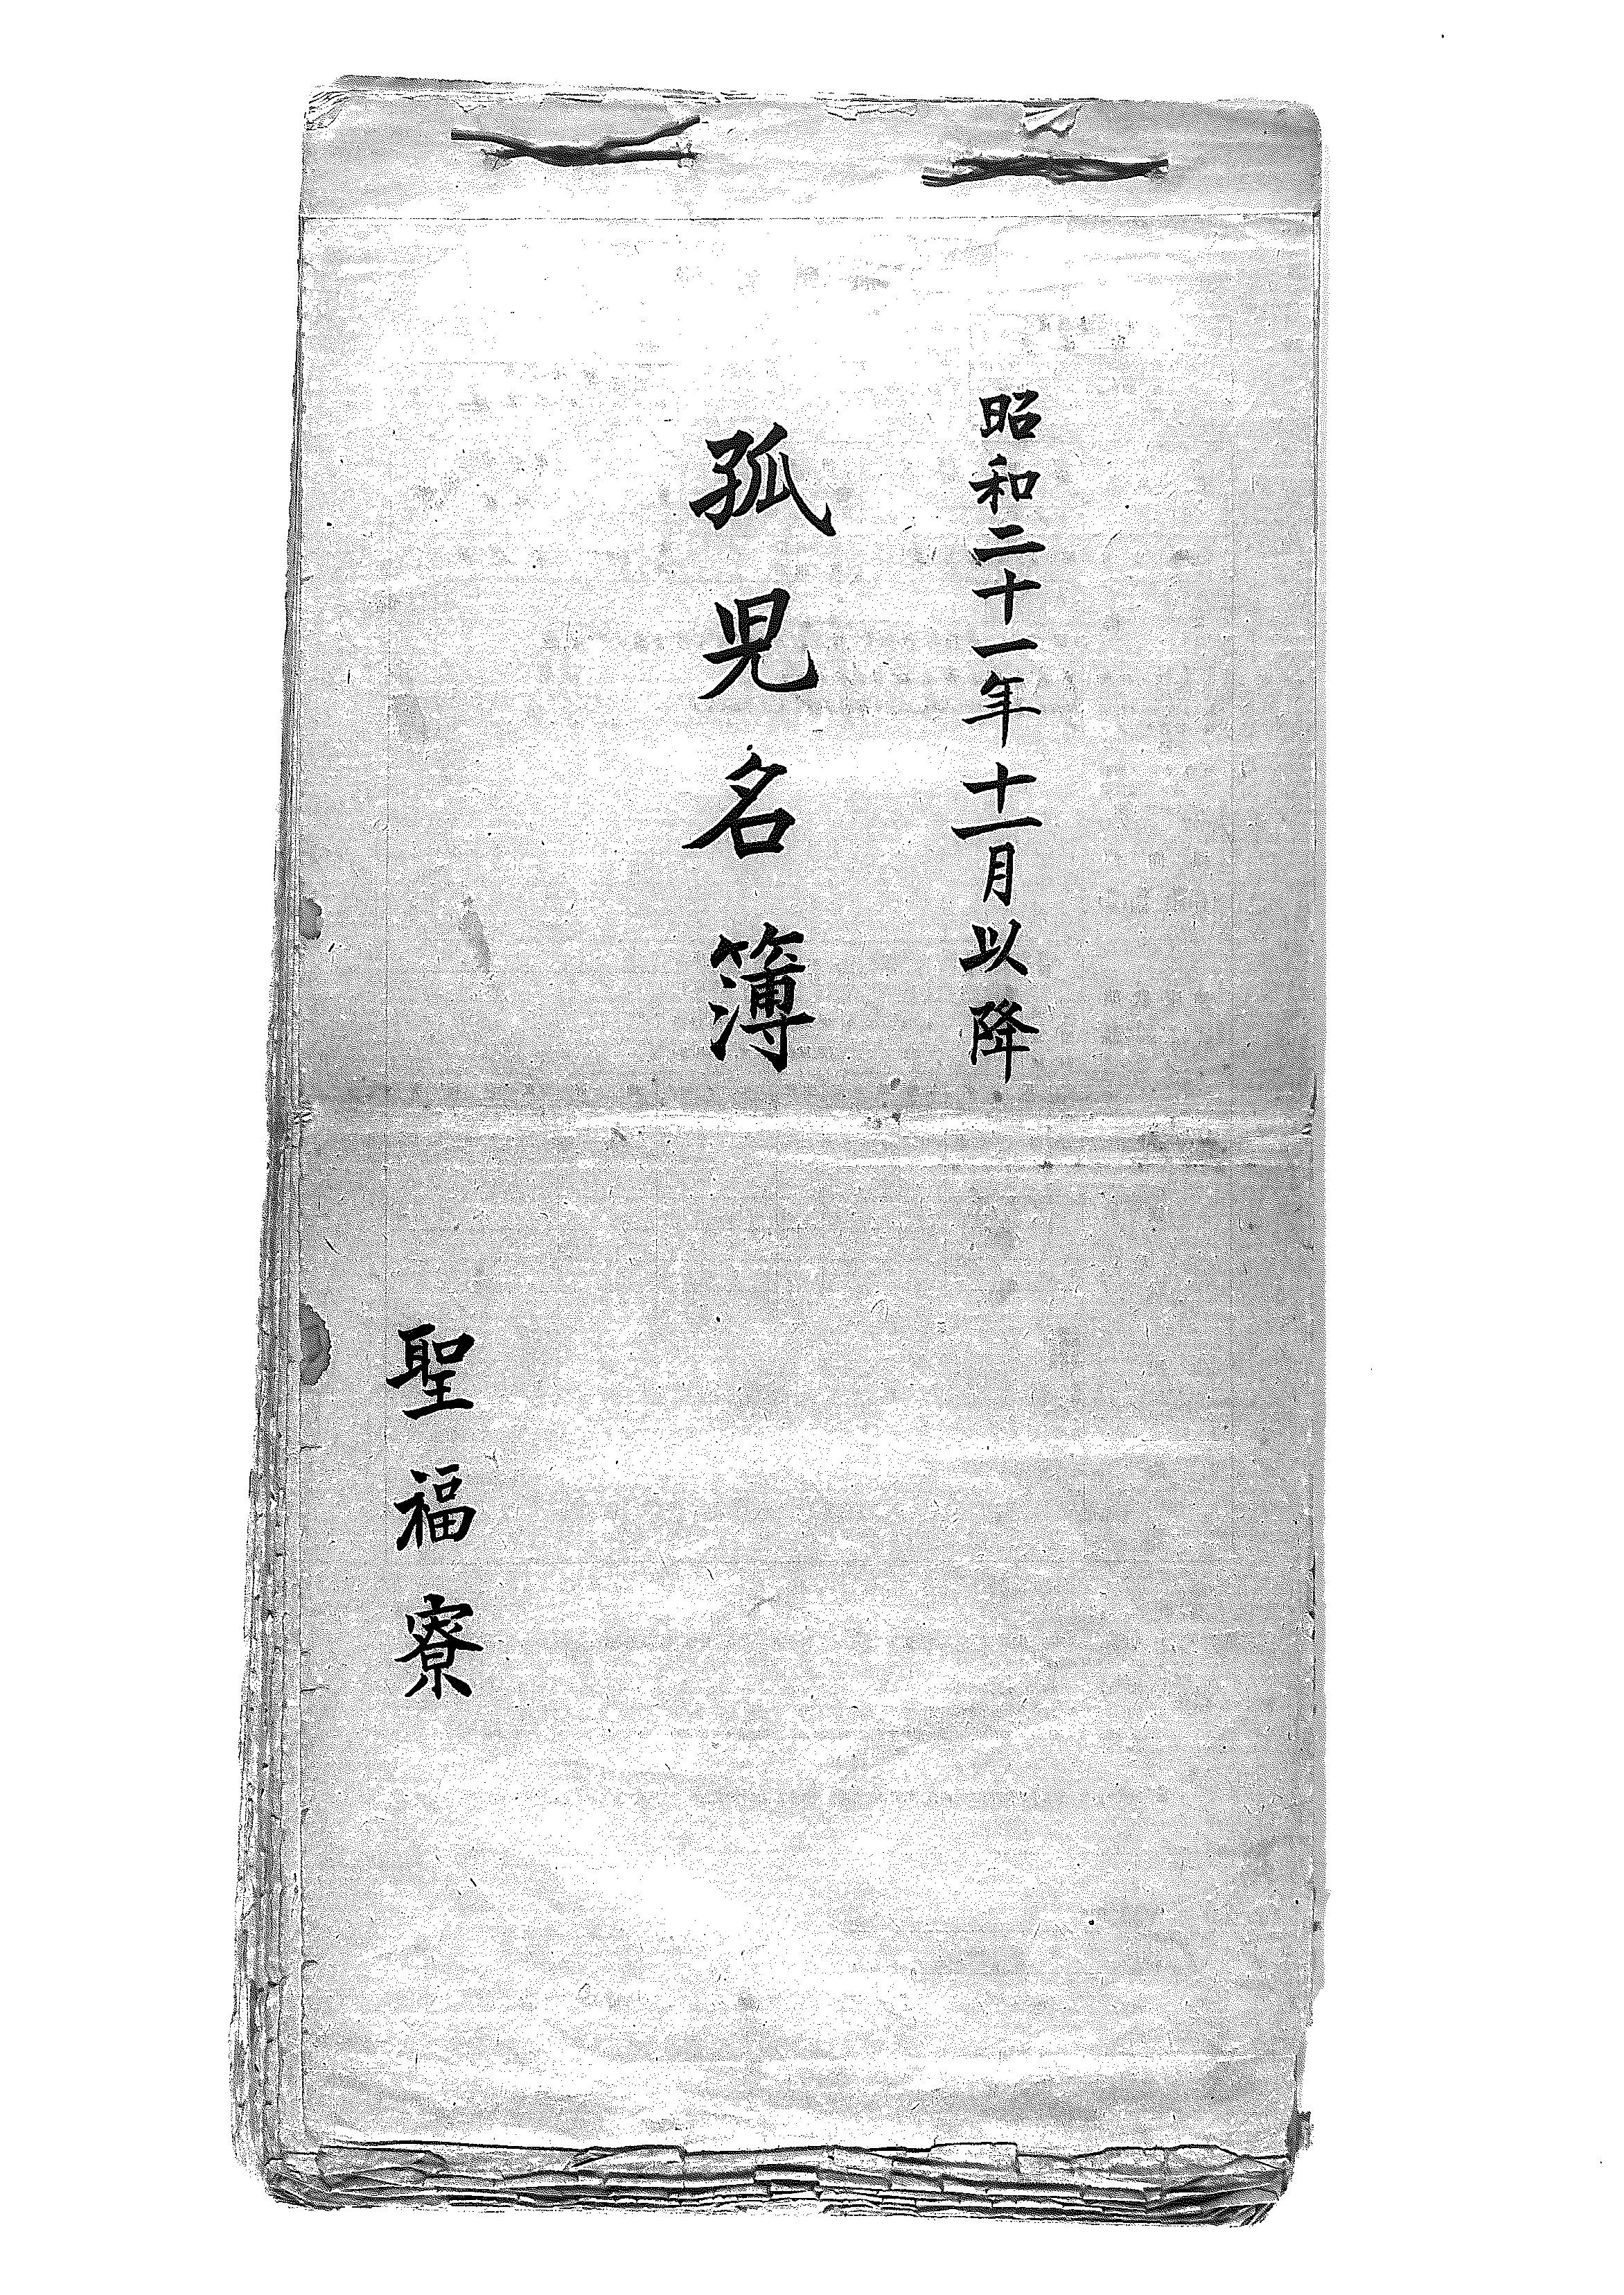 昭和二十一年十一月以降
孤児名簿
聖福寮